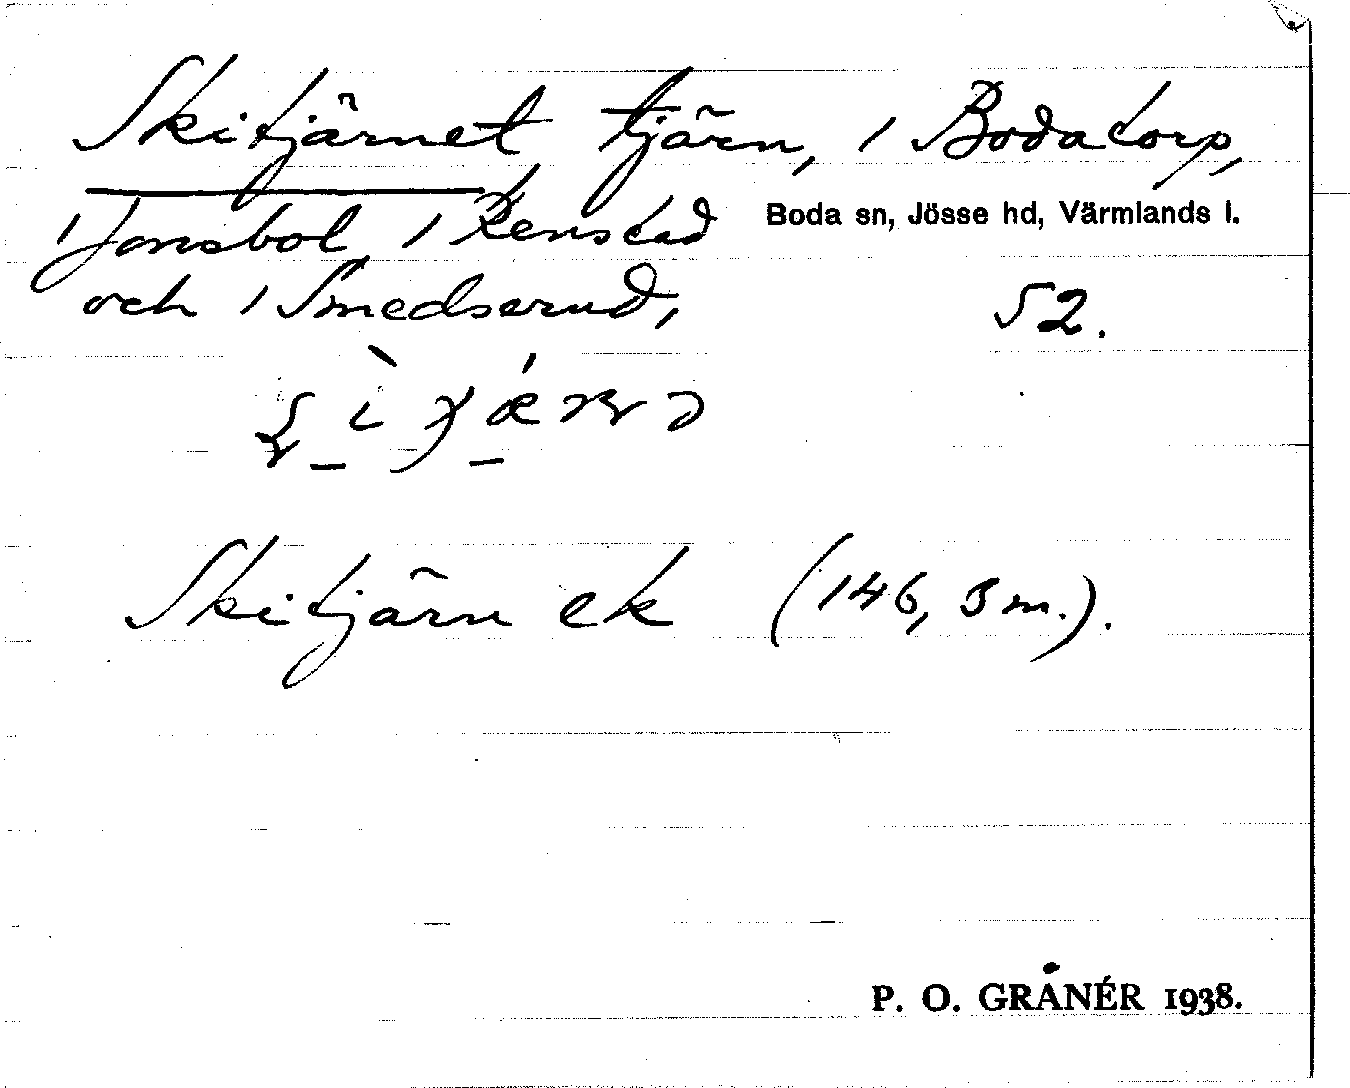 Skitjärnet tjärn, i Bodatorp,
i Jonsbol, i Renstad
Boda sn, Jösse hd, Värmlands l.
och i Smedserud,
52.
Skitjärn ek (146,3 m.).
P. O. GRÅNÉR 1938.